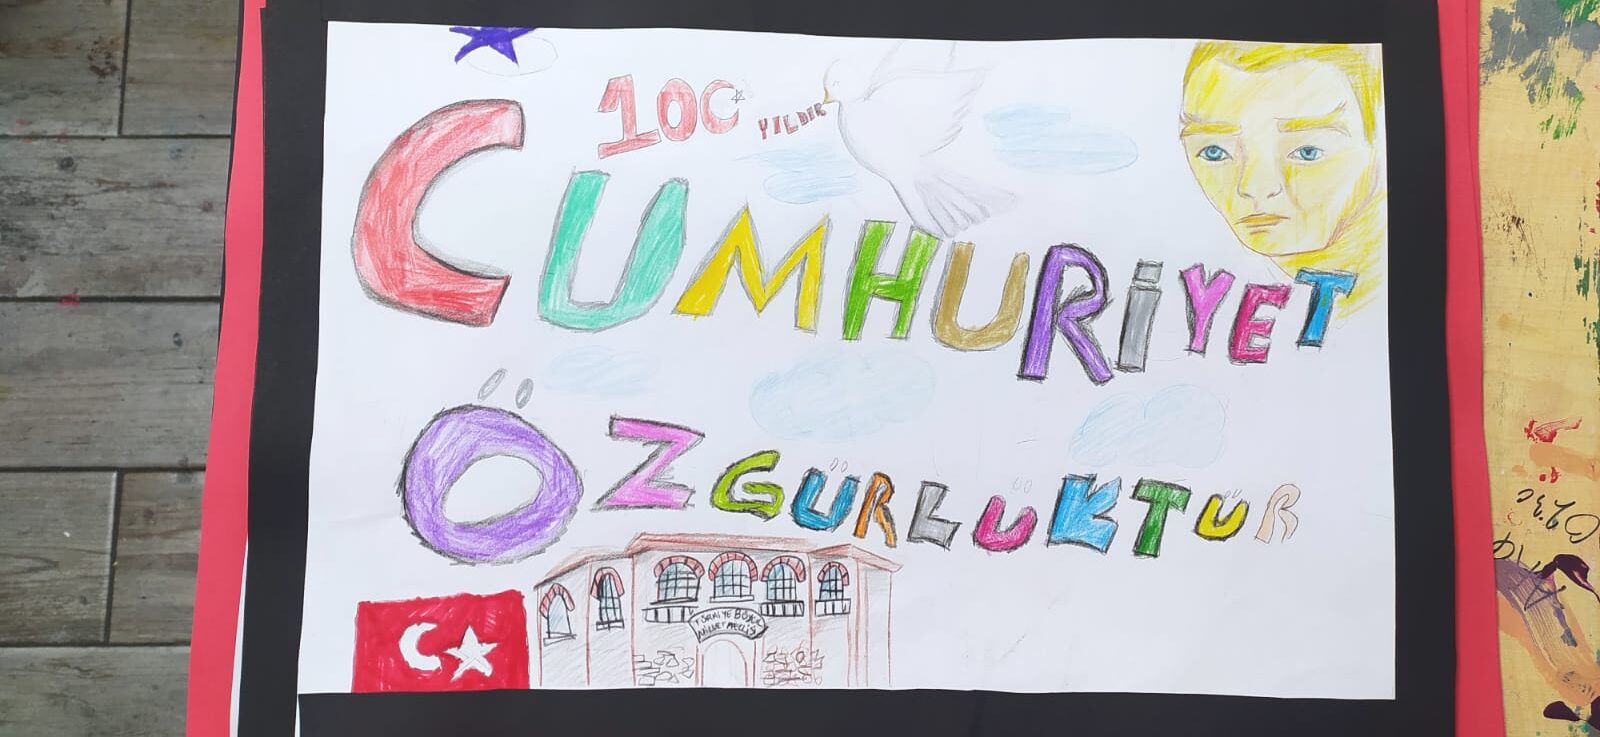 100 YILDIR
CUMHURİYET
ÖZGÜRLÜKTÜR
TÜRKİYE BÜYÜK
MİLLET MECLİS